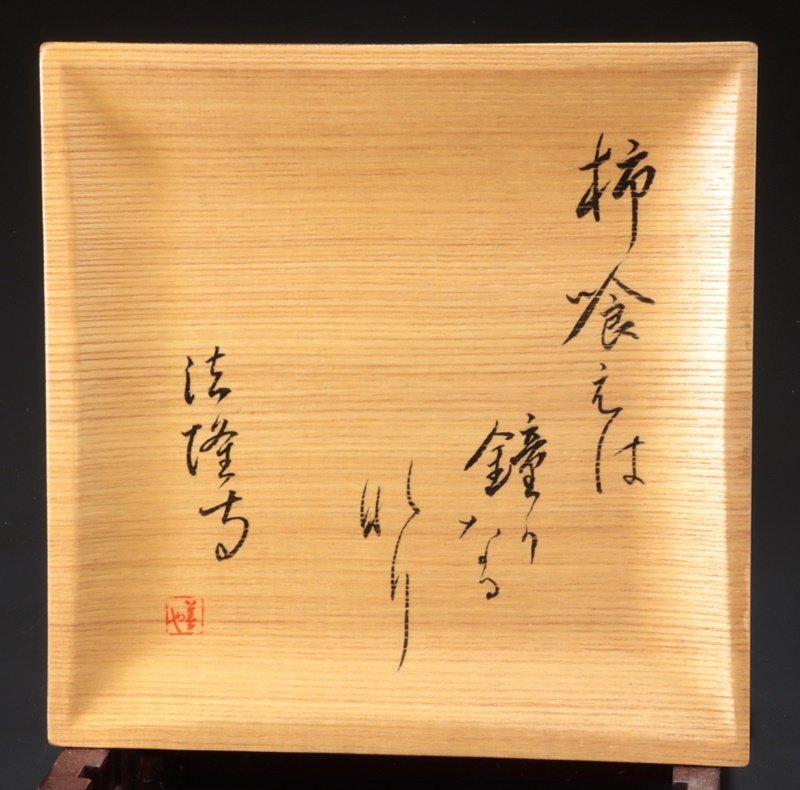 柿喰えは
鐘か
なる
なり
法隆寺